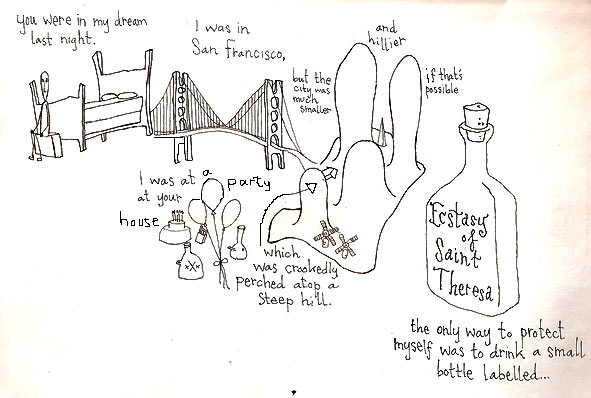 you were in my dream
last night.
I was in
San Francisco,
but the
city was
much
smaller
and
hillier
if that's
possible
I was at a party
at your
house
xXx
which
was crookedly
perched atop a
steep hill.
the only way to protect
myself was to drink a small
bottle labelled...
Ecstasy
of
Saint
Theresa